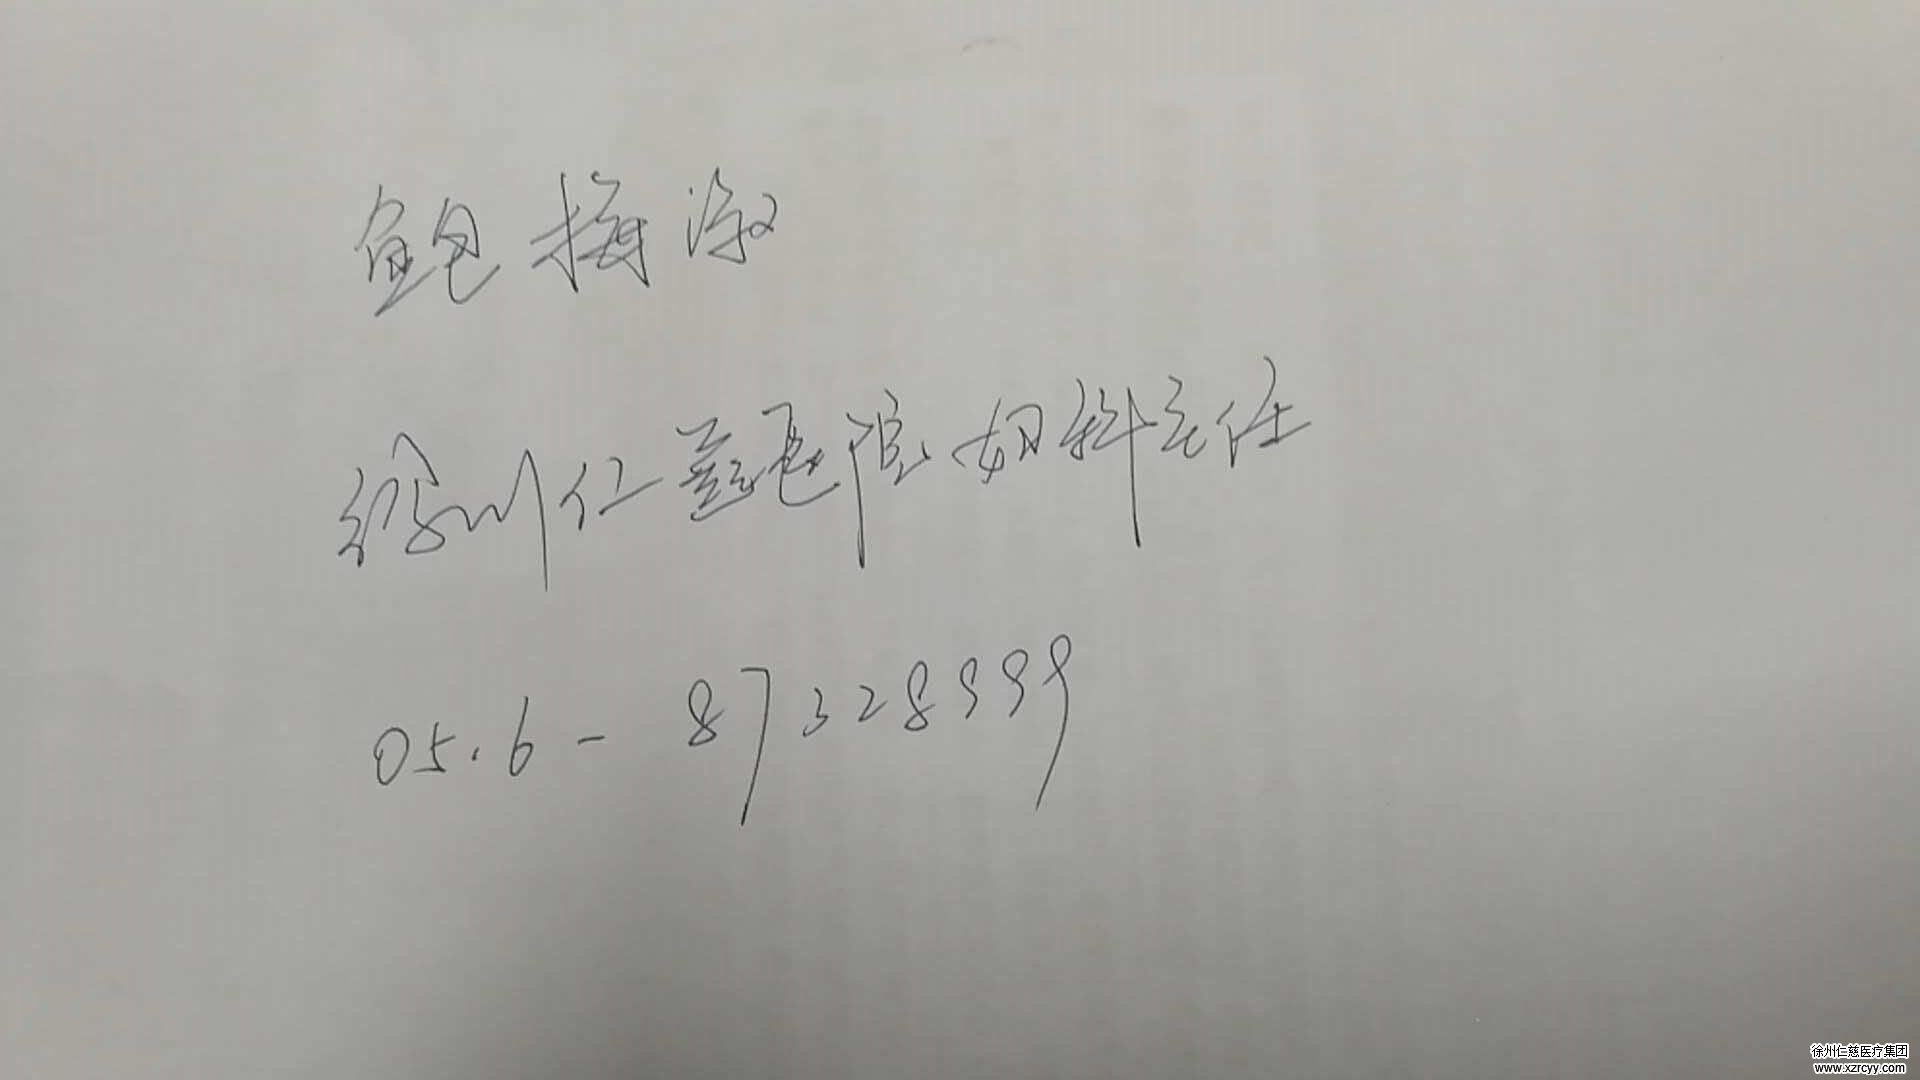 鲍梅淑
徐州仁慈医院妇科主任
05.6-87328999
徐州仁慈医疗集团
www.xzrcyy.com